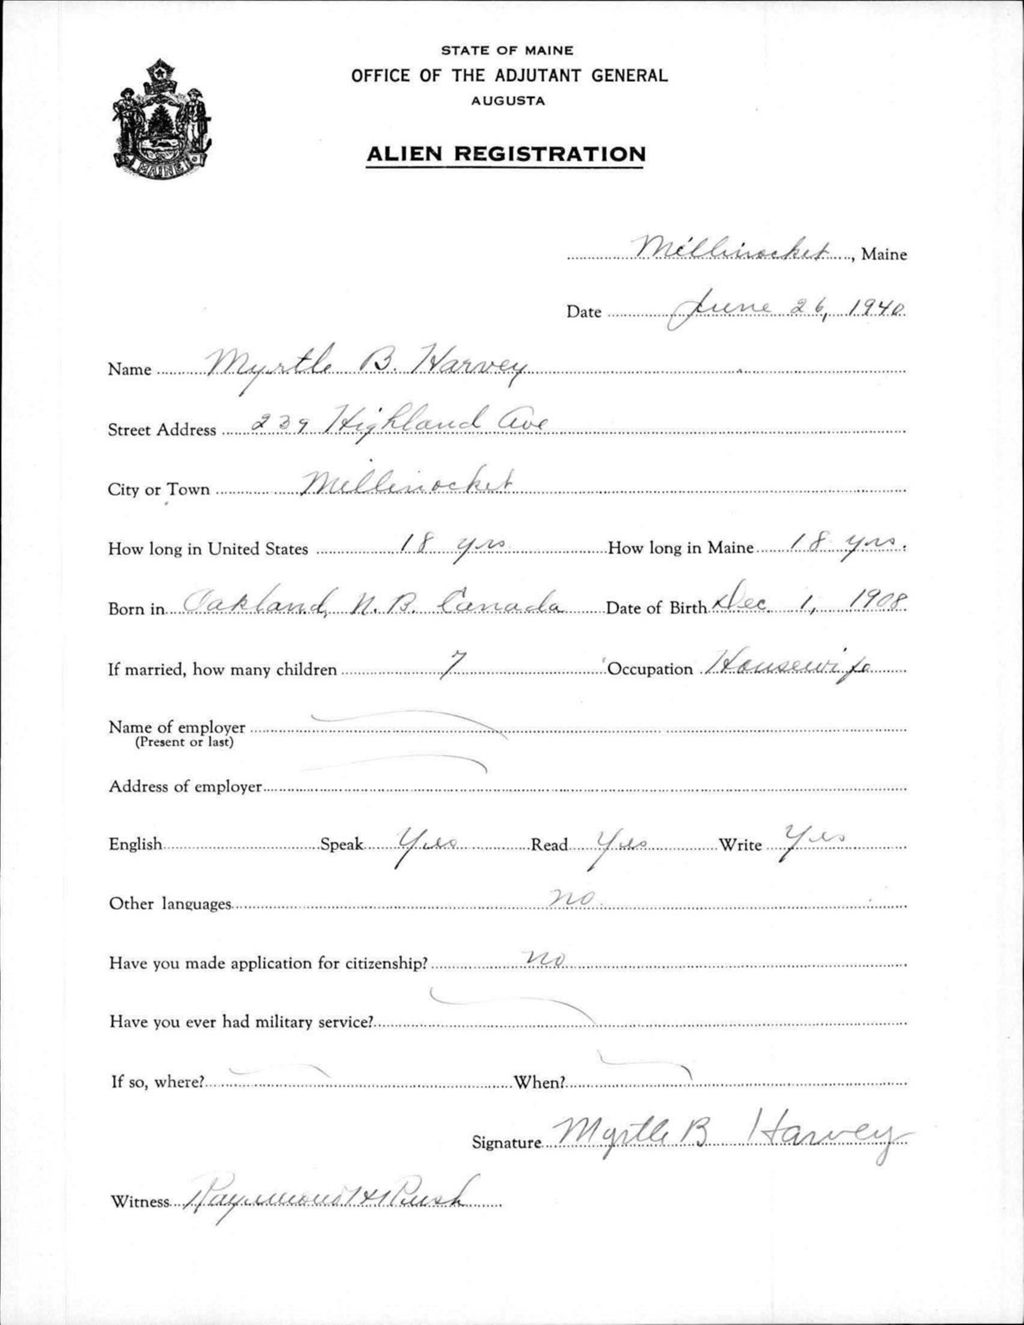 STATE OF MAINE
OFFICE OF THE ADJUTANT GENERAL
AUGUSTA
ALIEN REGISTRATION
MAINE
Millinocket, Maine
Date June 26, 1940
Name Myrtle B. Harvey
Street Address 239 Highland Ave
City or Town Millinocket
How long in United States 18 yrs How long in Maine 18 yrs.
Born in Oakland, N. B. Canada Date of Birth Dec 1, 1908
If married, how many children 7 Occupation Housewife
Name of employer
(Present or last)
Address of employer
English Speak Yes Read Yes Write Yes
Other languages no
Have you made application for citizenship? no
Have you ever had military service?
If so, where? When?
Signature Myrtle B Harvey
Witness Raymond H Rush